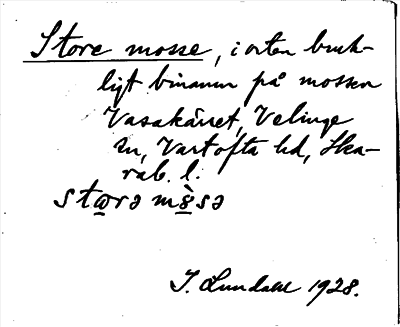 Store mosse, i orten bruk-
ligt binamn på mossen
Vasakärret, Velinge
sn, Vartofta hd, Ska-
rab. l.
stɷrə mɞ̀sə
J. Lundahl 1928.